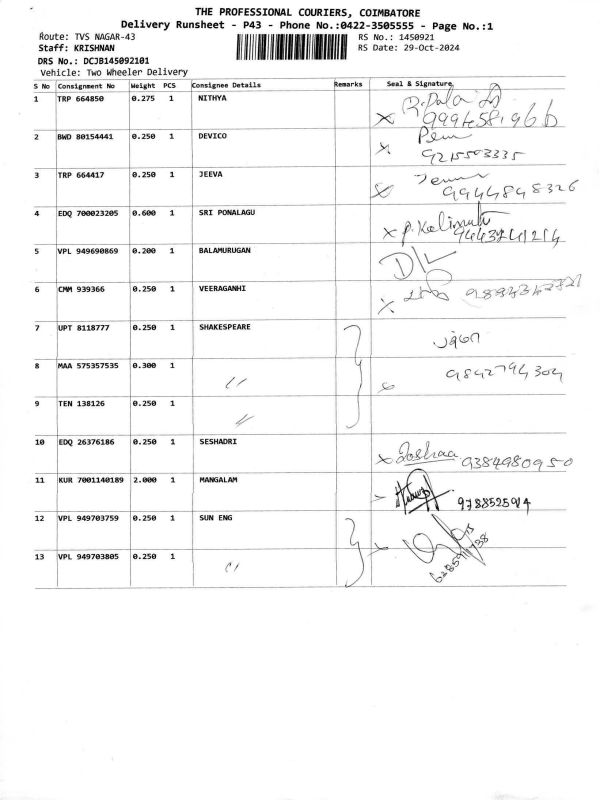 THE PROFESSIONAL COURIERS, COIMBATORE
Delivery Runsheet - P43 - Phone No.:0422-3505555 - Page No.:1
Route: TVS NAGAR-43 RS No.: 1450921
Staff: KRISHNAN RS Date: 29-Oct-2024
DRS No.: DCJB145092101
Vehicle: Two Wheeler Delivery
S No Consignment No Weight PCS Consignee Details Remarks Seal & Signature
1 TRP 664850 0.275 1 NITHYA
2 BWD 80154441 0.250 1 DEVICO
9215503335
3 TRP 664417 0.250 1 JEEVA
9944848326
4 EDQ 700023205 0.600 1 SRI PONALAGU
9443241214
5 VPL 949690869 0.200 1 BALAMURUGAN
6 CMM 939366 0.250 1 VEERAGANHI
7 UPT 8118777 0.250 1 SHAKESPEARE
8 MAA 575357535 0.300 1 〃
9842794304
9 TEN 138126 0.250 1 〃
10 EDQ 26376186 0.250 1 SESHADRI
9384980950
11 KUR 7001140189 2.000 1 MANGALAM
9788525914
12 VPL 949703759 0.250 1 SUN ENG
13 VPL 949703805 0.250 1 〃